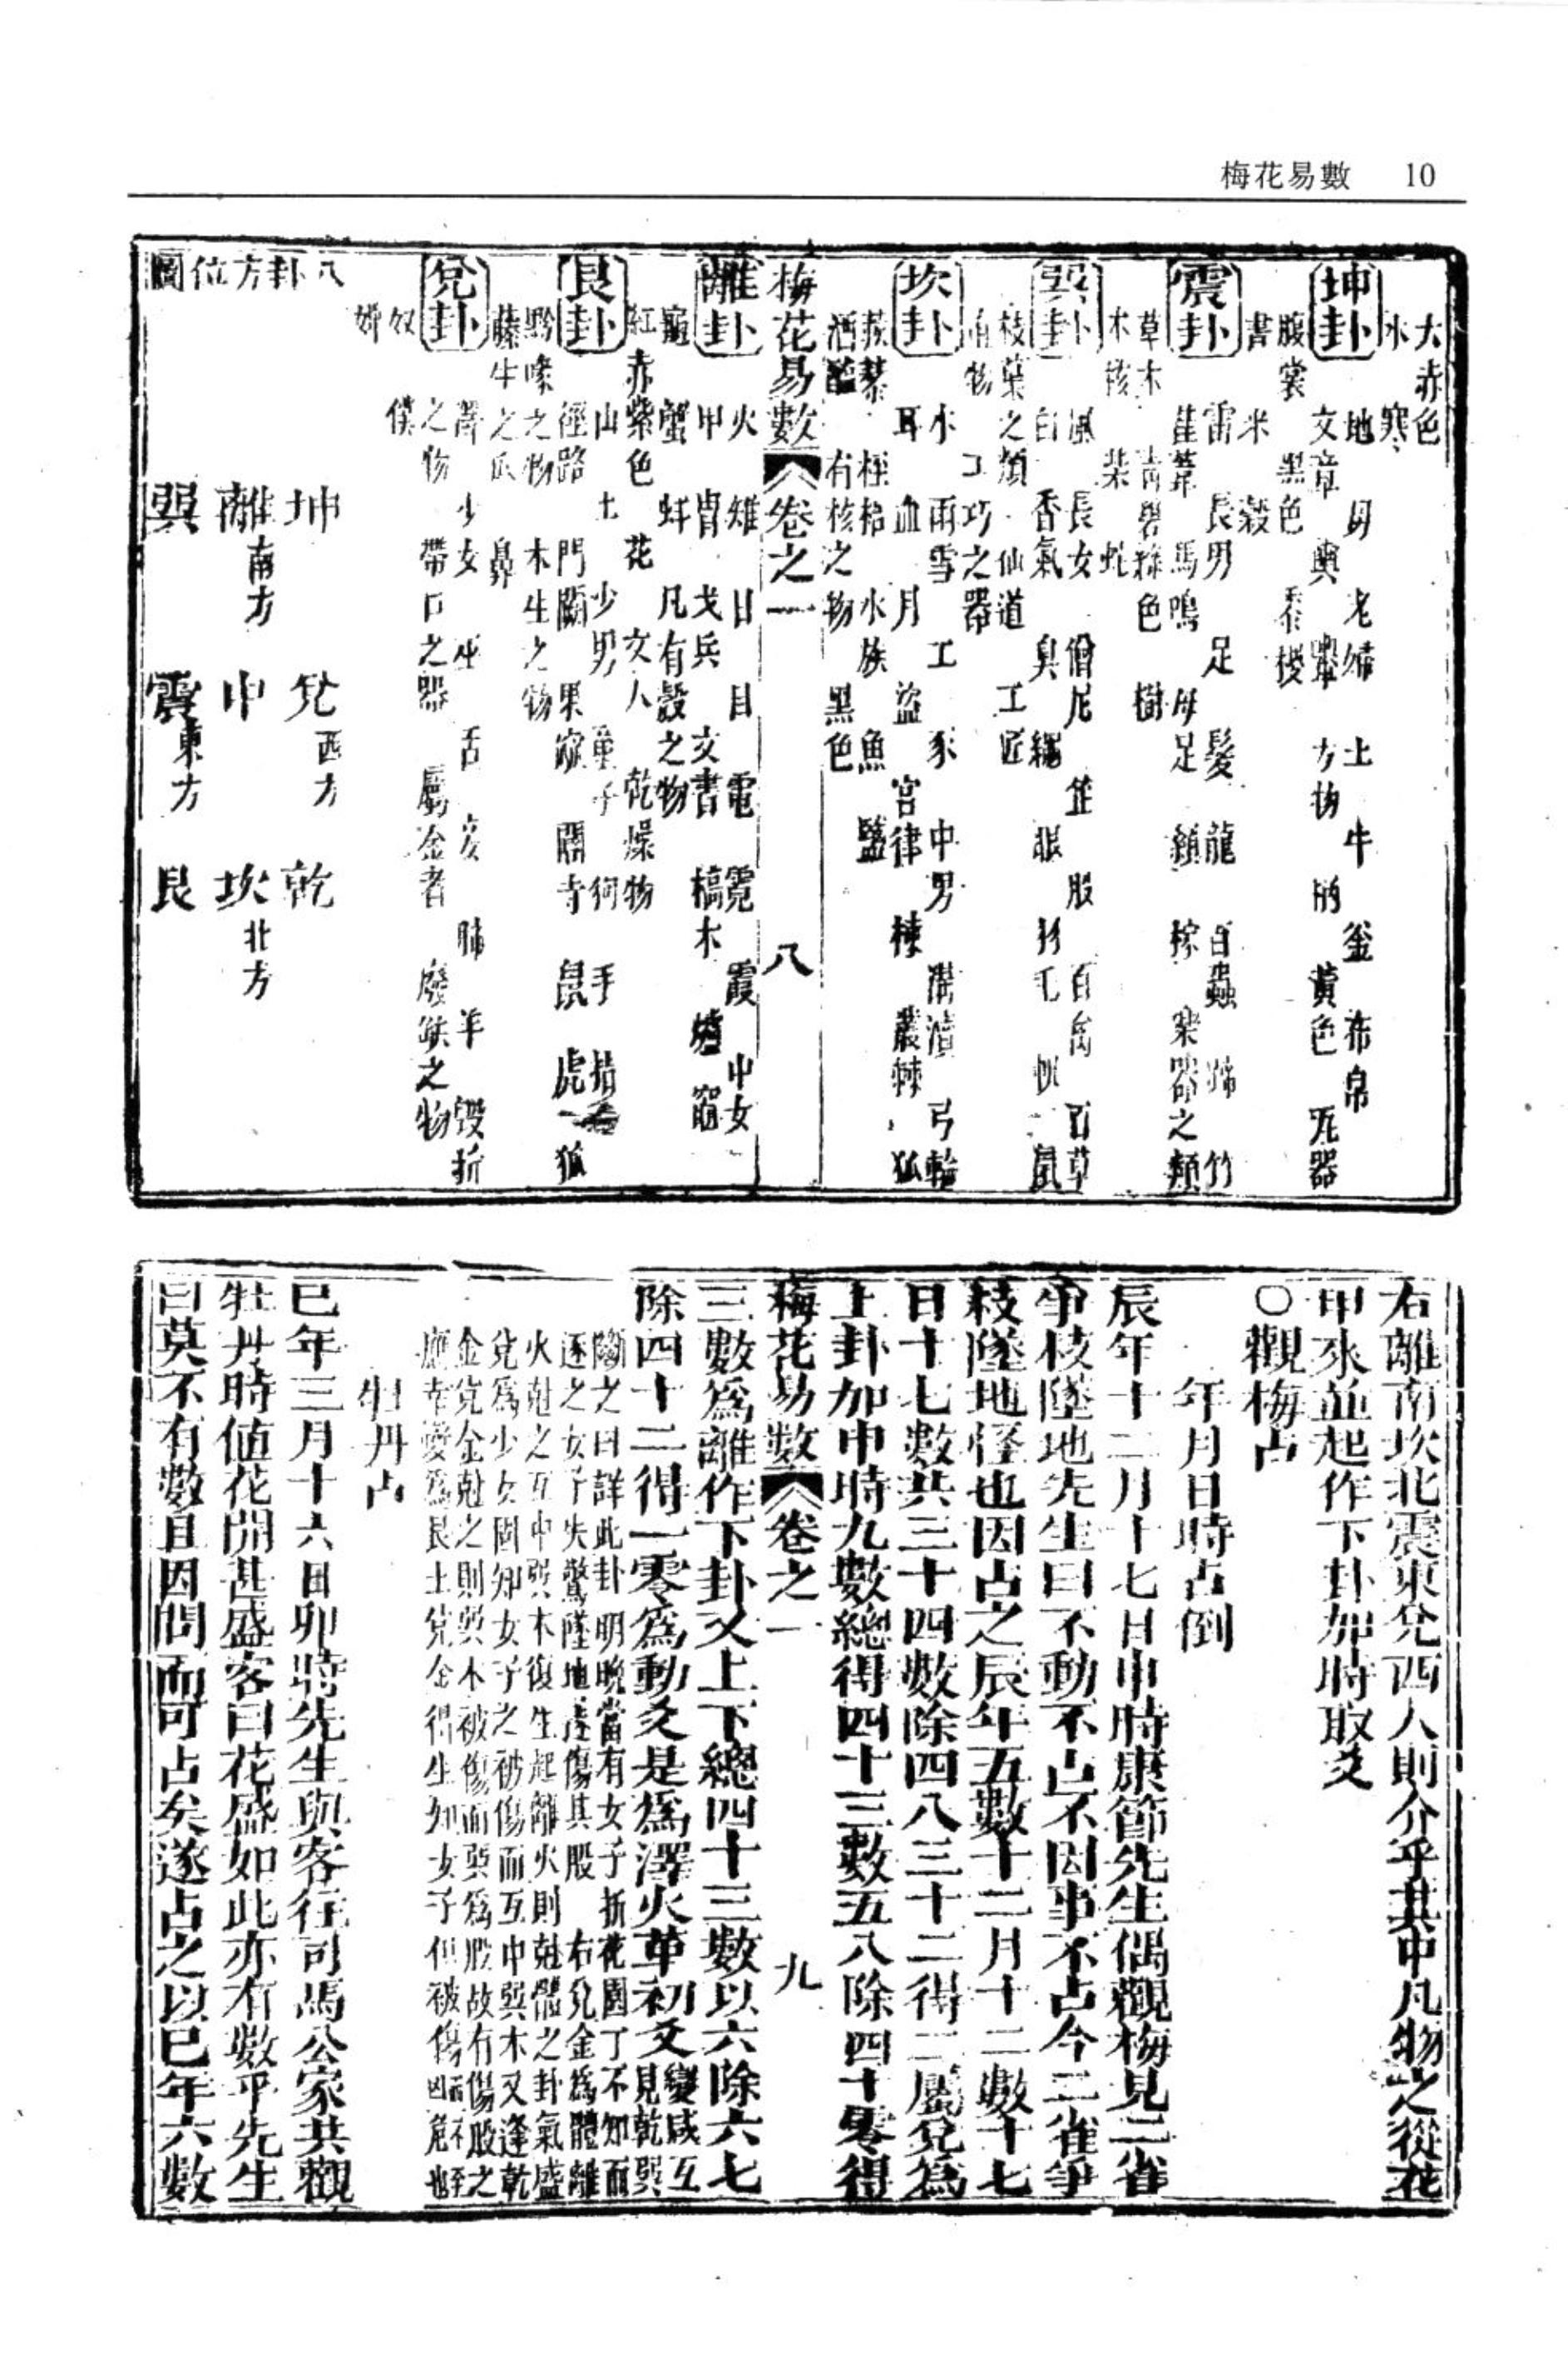 梅花易數 10
大赤色
冰 寒
坤卦 地 母 老婦 土 牛 釜 布帛
文章 輿 轝 方物 柄 黃色 瓦器
腹 裳 黑色 黍稷
書 米 穀
震卦 雷 長男 足 髮 龍 百蟲 蹄 竹
萑葦 馬鳴 馵足 顙 稼 樂器之類
草木 青碧綠色 樹
木核 柴 蛇
巽卦 風 長女 僧尼 雞 股 百禽 百草
臼 香氣 臭 繩 眼 羽毛 帆 鼠
枝葉之類 仙道 工匠
直物 工巧之器
坎卦 水 雨雪 工 豕 中男 溝瀆 弓輪
耳 血 月 盜 宮律 棟 叢棘 狐
蒺藜 桎梏 水族 魚 鹽
酒醢 有核之物 黑色
梅花易數 卷之一 八
離卦 火 雉 日 目 電 霓 霞 中女
甲 冑 戈兵 文書 槁木 爐 竈
龜 蟹 蚌 凡有殼之物
紅赤紫色 花 文人 乾燥物
艮卦 山 土 少男 童子 狗 手 指
徑路 門闕 果蓏 閽寺 鼠 虎 狐
黔喙之物 木生之物
藤生之瓜 鼻
兌卦 澤 少女 巫 舌 妾 肺 羊 毀折
之物 帶口之器 屬金者 廢缺之物
奴 僕
婢
八卦方位圖
坤 兌西方 乾
離南方 中 坎北方
巽 震東方 艮
右離南坎北震東兌西人則介乎其中凡物之從花
甲來並起作下卦加時取爻
〇觀梅占
年月日時占例
辰年十二月十七日申時康節先生偶觀梅見二雀
爭枝墜地先生曰不動不占不因事不占今二雀爭
枝墜地怪也因占之辰年五數十二月十二數十七
日十七數共三十四數除四八三十二得二屬兌爲
上卦加申時九數總得四十三數五八除四十零得
梅花易數 卷之一 九
三數爲離作下卦又上下總四十三數以六除六七
除四十二得一零爲動爻是爲澤火革初爻變咸互
見乾巽
斷之曰詳此卦明晚當有女子折花園丁不知而
逐之女子失驚墜地遂傷其股 右兌金爲體離
火尅之互中巽木復生起離火則尅體之卦氣盛
兌爲少女因知女子之被傷而互中巽木又逢乾
金兌金尅之則巽木被傷而巽爲股故有傷股之
應幸變爲艮土兌金得生知女子但被傷而不至
凶危也
牡丹占
巳年三月十六日卯時先生與客往司馬公家共觀
牡丹時値花開甚盛客曰花盛如此亦有數乎先生
曰莫不有數且因問而可占矣遂占之以巳年六數